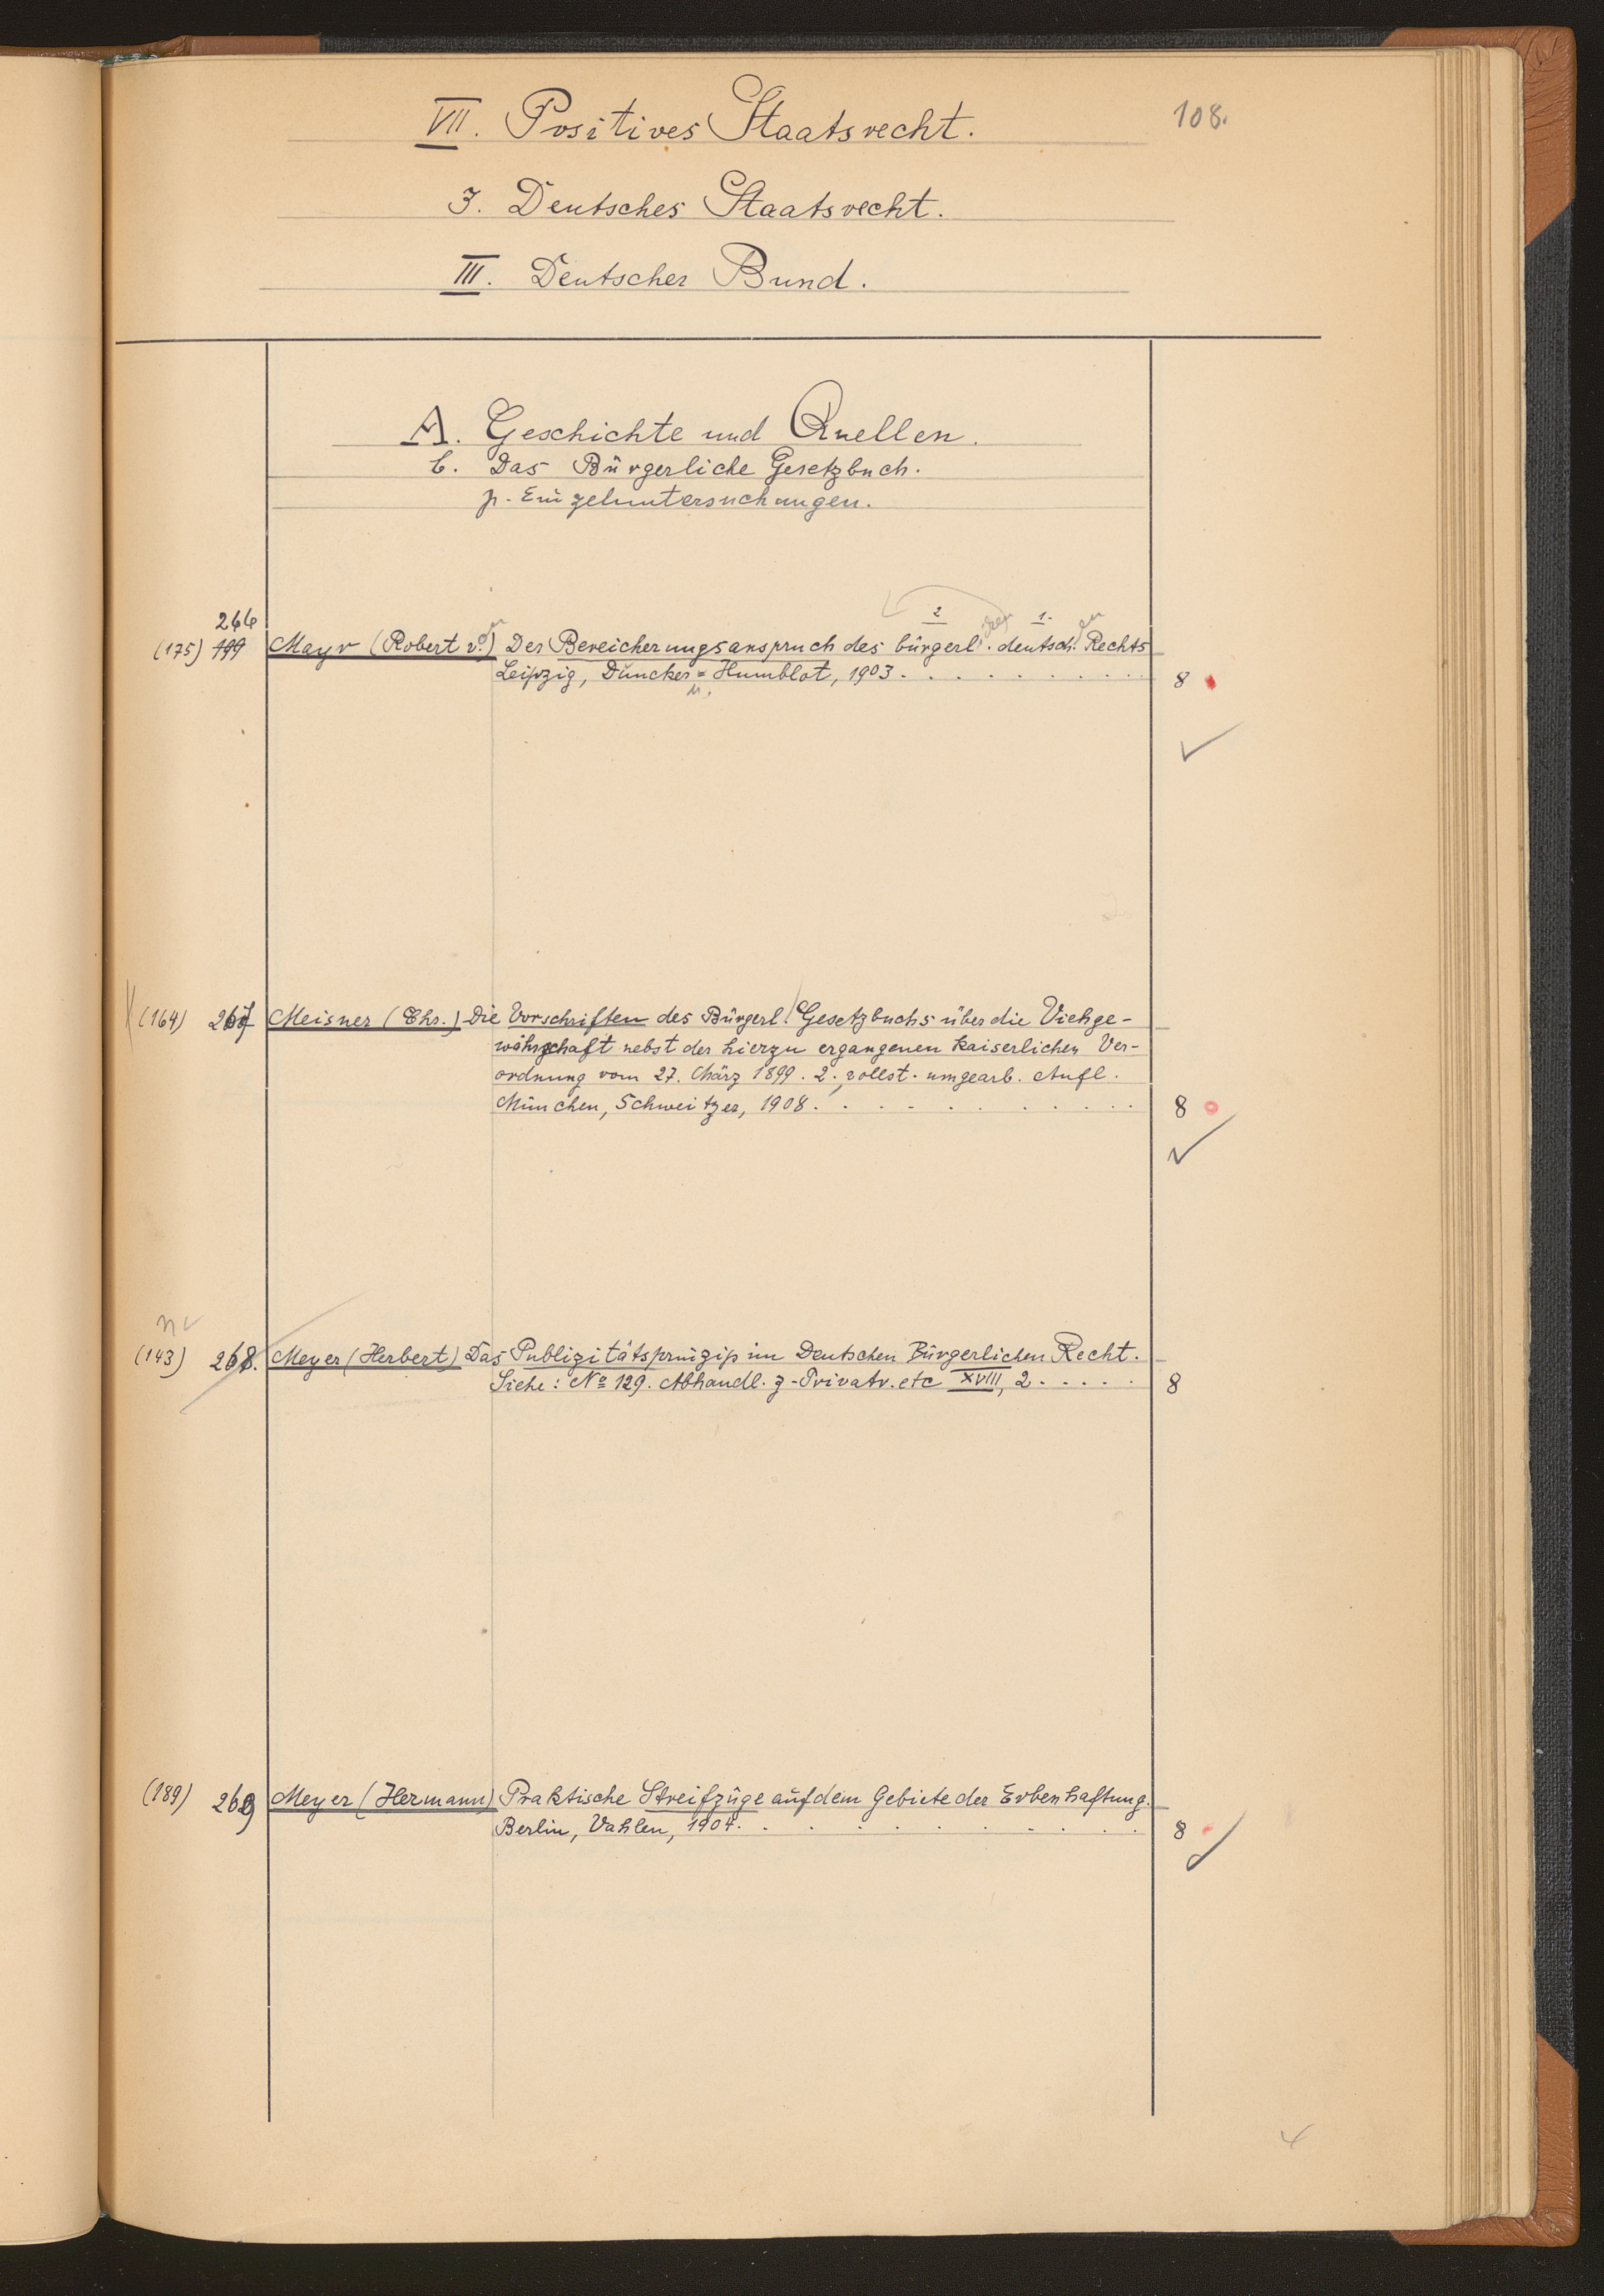 108.
VII. Positives Staatsrecht.
3. Deutsches Staatsrecht.
III. Deutscher Bund.
A. Geschichte und Quellen.
b. Das Bürgerliche Gesetzbuch.
γ. Einzeluntersuchungen.
266 2 1.
(175) 199 Mayr (Robert v.) Der Bereicherungsanspruch des bürgerl. deutsch. Rechts
Leipzig, Duncker = Humblot, 1903. 8
u.
(164) 267 Meisner (Chr.) Die Vorschriften des Bürgerl. Gesetzbuchs über die Viehge-
währschaft nebst der hierzu ergangenen Kaiserlichen Ver-
ordnung vom 27. März 1899. 2. vollst. umgearb. Aufl.
München, Schweitzer, 1908. 8
(143) 268. Meyer (Herbert) Das Publizitätsprinzip im Deutschen Bürgerlichen Recht.
Siehe: No 129. Abhandl. z. Privatr. etc XVIII, 2 . . . . . 8
(189) 269 Meyer (Hermann) Praktische Streifzüge auf dem Gebiete der Erbenhaftung.
Berlin, Vahlen, 1904. 8
4